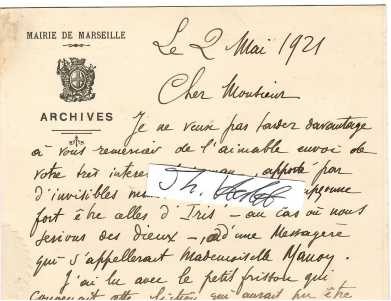 MAIRIE DE MARSEILLE
ARCHIVES
Le 2 Mai 1921
Cher Monsieur
Je ne veux pas tarder davantage
à vous remercier de l'aimable envoi de
votre très apporté par
d'invisibles
fort être ailes d'Iris – au cas où nous
serions des dieux – d'une Messagère
qui s'appellerait Mademoiselle
J'ai lu avec le petit frisson qui
cette fiction qu'aurait pu être